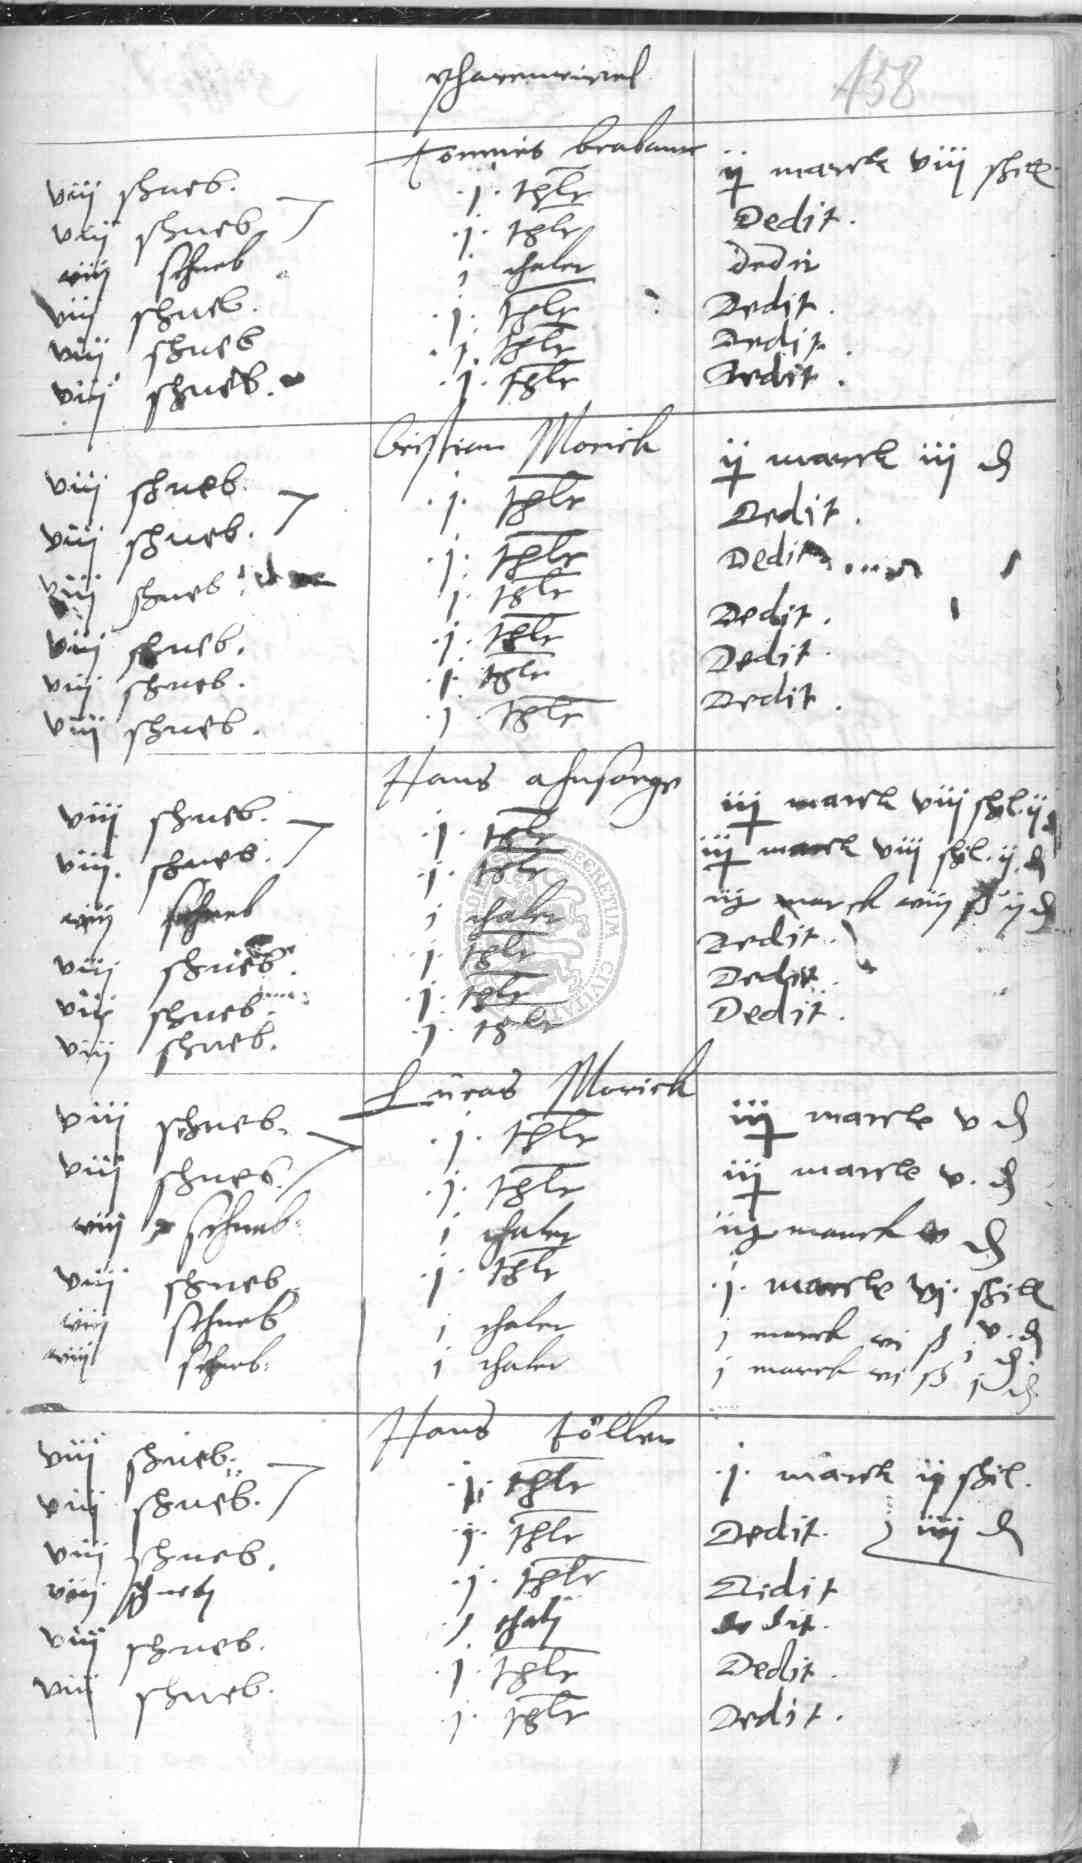 158
Tonnies brabant
viij schneb. j. thlr ij marck viij schill
viij schneb. j. thlr Dedit.
viij schneb j thaler dedit
viij schneb. j. thlr Dedit.
viij schneb j. thlr Dedit.
viij schneb. j. thlr Dedit.
Cristian Morick
viij schneb. j. thlr ij marck iij d
viij schneb. j. thlr Dedit.
viij schneb j. thlr Dedit
viij schneb. j. thlr Dedit.
viij schneb. j. thlr Dedit.
viij schneb. j. thlr Dedit.
Hans ahnsorge
viij schneb. j. thlr iij marck viij schl. ij d
viij. schneb. j. thlr iij marck viij schil. ij. d
viij schneb j thaler iij marck viij ß ij d
viij schneb. j. thlr Dedit.
viij schneb. j. thlr Dedit
viij schneb. j. thlr Dedit.
Lucas Morick
viij schneb. j. thlr iij marck v d
viij schneb. j. thlr iij marck v. d
viij schneb. j thaler iij marck v d
viij schneb. j. thlr j. marck vj. schill
v. d
viij schneb j thaler j marck vi ß j d
viij schneb. j thaler j marck vi ß j d
Hans Föller
viij schneb. j. thlr j. marck ij schil.
iiij d
viij schneb. j. thlr Dedit.
viij schneb. j. thlr Didit
viij schneb j thalr dedit.
viij schneb. j. thlr Dedit.
viij schneb. j. thlr Dedit.